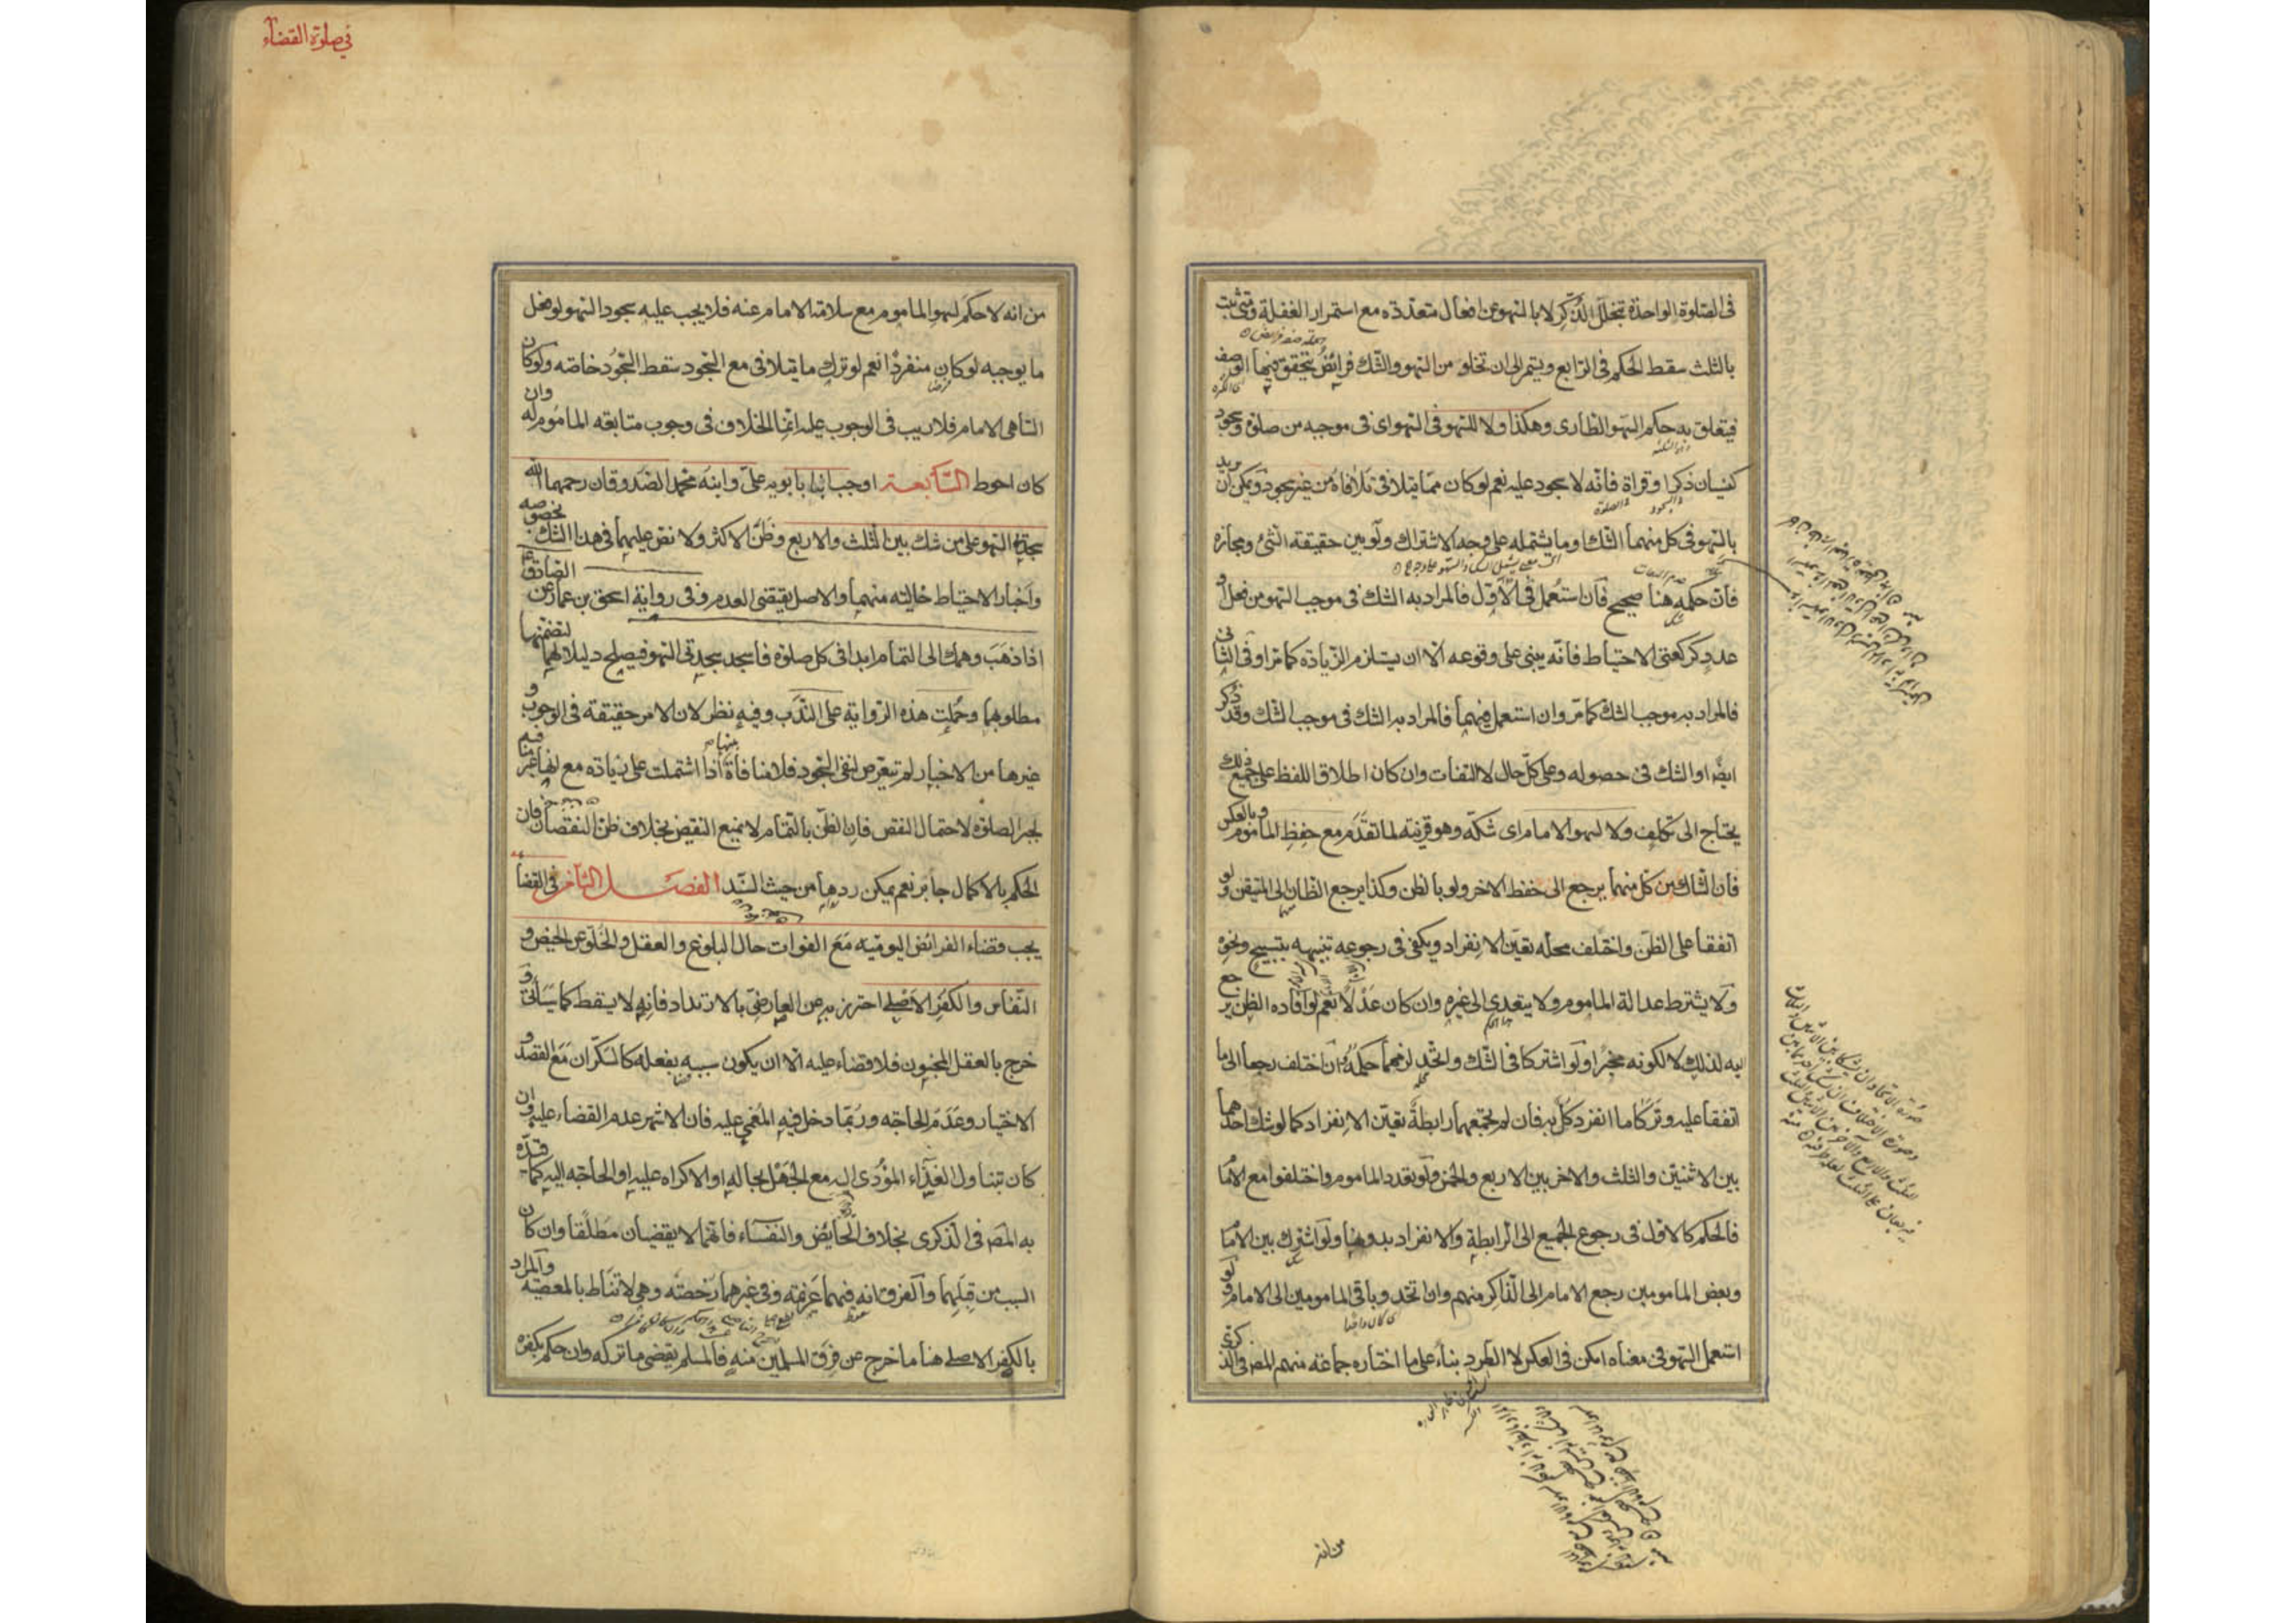 في الصلوة الواحدة بتخلل الذكر لا بالسهو عن افعال متعددة مع استمرار الغفلة ومتى ثبت
بالثلث سقط الحكم في الرابع ويستمر الى ان تخلو من السهو والشك فرائض يتحقق فيها الوصف
فيتعلق به حكم السهو الطارى وهكذا ولا للسهو في السهو اى في موجبه من صلوة وسجود
كنسيان ذكر او قراة فانه لا سجود عليه نعم لو كان مما يتلافى تلافاه من غير سجود ويمكن ان يريد
بالسهو في كل منهما الشك او ما يشتمله على وجه الاشتراك ولو بين حقيقة الشئ ومجازه
فان حكمه هنا صحيح فان استعمل في الاول فالمراد به الشك في موجب السهو من فعل او
عدد كركعتى الاحتياط فانه يبنى على وقوعه الا ان يستلزم الزيادة كما مر او في الثانى
فالمراد به موجب الشك كما مر وان استعمل فيهما فالمراد به الشك في موجب الشك وقد ذكر
ايضا او الشك في حصوله وعلى كل حال لا التفات وان كان اطلاق اللفظ على جميع ذلك
يحتاج الى تكلف ولا لسهو الامام اى شكه وهو قرينة لما تقدم مع حفظ الماموم وبالعكس
فان الشاك من كل منهما يرجع الى حفظ الاخر ولو بالظن وكذا يرجع الظان الى المتيقن ولو
اتفقا على الظن واختلف محله تعين الانفراد ويكفى في رجوعه تنبيهه بتسبيح ونحوه
ولا يشترط عدالة الماموم ولا يتعدى الى غيره وان كان عدلا نعم لو افاده الظن رجع
اليه لذلك لا لكونه مخبرا ولو اشتركا في الشك واتحد لزمهما حكمه وان اختلف رجعا الى ما
اتفقا عليه وتركا ما انفرد كل به فان لم يجمعهما رابطة تعين الانفراد كما لو شك احدهما
بين الاثنتين والثلث والاخر بين الاربع والخمس ولو تعدد الماموم واختلفوا مع الامام
فالحكم كالاول في رجوع الجميع الى الرابطة والانفراد بدونها ولو اشترك بين الامام
وبعض المامومين رجع الامام الى الذاكر منهم وان اتحد وباقى المامومين الى الامام ولو
استعمل السهو في معناه امكن في العكس لا الطرد بناء على ما اختاره جماعة منهم المص في الذكرى
في صلوة القضاء
من انه لا حكم لسهو الماموم مع سلامة الامام عنه فلا يجب عليه سجود السهو لو فعل
ما يوجبه لو كان منفردا نعم لو ترك ما يتلافى مع السجود سقط السجود خاصة ولو كان
الساهى الامام فلا ريب في الوجوب عليه انما الخلاف في وجوب متابعة الماموم له وان
كان احوط السابعة اوجب ابنا بابويه على وابنه محمد الصدوقان رحمهما الله
سجدتى السهو على من شك بين الثلث والاربع وظن الاكثر ولا نص عليهما في هذا الشك بخصوصه
واخبار الاحتياط خالية منهما والاصل يقتضى العدم وفى رواية اسحق بن عمار عن الصادق
اذا ذهب وهمك الى التمام ابدا في كل صلوة فاسجد سجدتى السهو فيصلح دليلا لهما لتضمنها
مطلوبهما وحملت هذه الرواية على الندب وفيه نظر لان الامر حقيقة في الوجوب و
غيرها من الاخبار لم يتعرض لنفى السجود فلا منافاة اذا اشتملت على زيادة مع انها غير منافية
لجبر الصلوة لاحتمال النقص فان الظن بالتمام لا يمنع النقص بخلاف ظن النقصان فان
الحكم بالاكمال جابر نعم يمكن ردها من حيث السند الفصل الثامن في القضاء
يجب قضاء الفرائض اليومية مع الفوات حال البلوغ والعقل والخلو عن الحيض و
النفاس والكفر الاصلى احترز به عن العارضى بالارتداد فانه لا يسقط كما سياتى و
خرج بالعقل المجنون فلا قضاء عليه الا ان يكون سببه بفعله كالسكران مع القصد و
الاختيار وعدم الحاجة وربما دخل فيه المغمى عليه فان الاشهر عدم القضاء عليه وان
كان بتناول الغذاء المؤدى اليه مع الجهل بحاله او الاكراه عليه او الحاجة اليه كما قيده
به المص في الذكرى بخلاف الحايض والنفساء فانهما لا يقضيان مطلقا وان كان
السبب من قبلهما والفرق انه فيهما عزيمة وفى غيرهما رخصة وهى لا تناط بالمعصية والمراد
بالكفر الاصلى هنا ما خرج عن فرق المسلمين منه فالمسلم يقضى ما تركه وان حكم بكفره